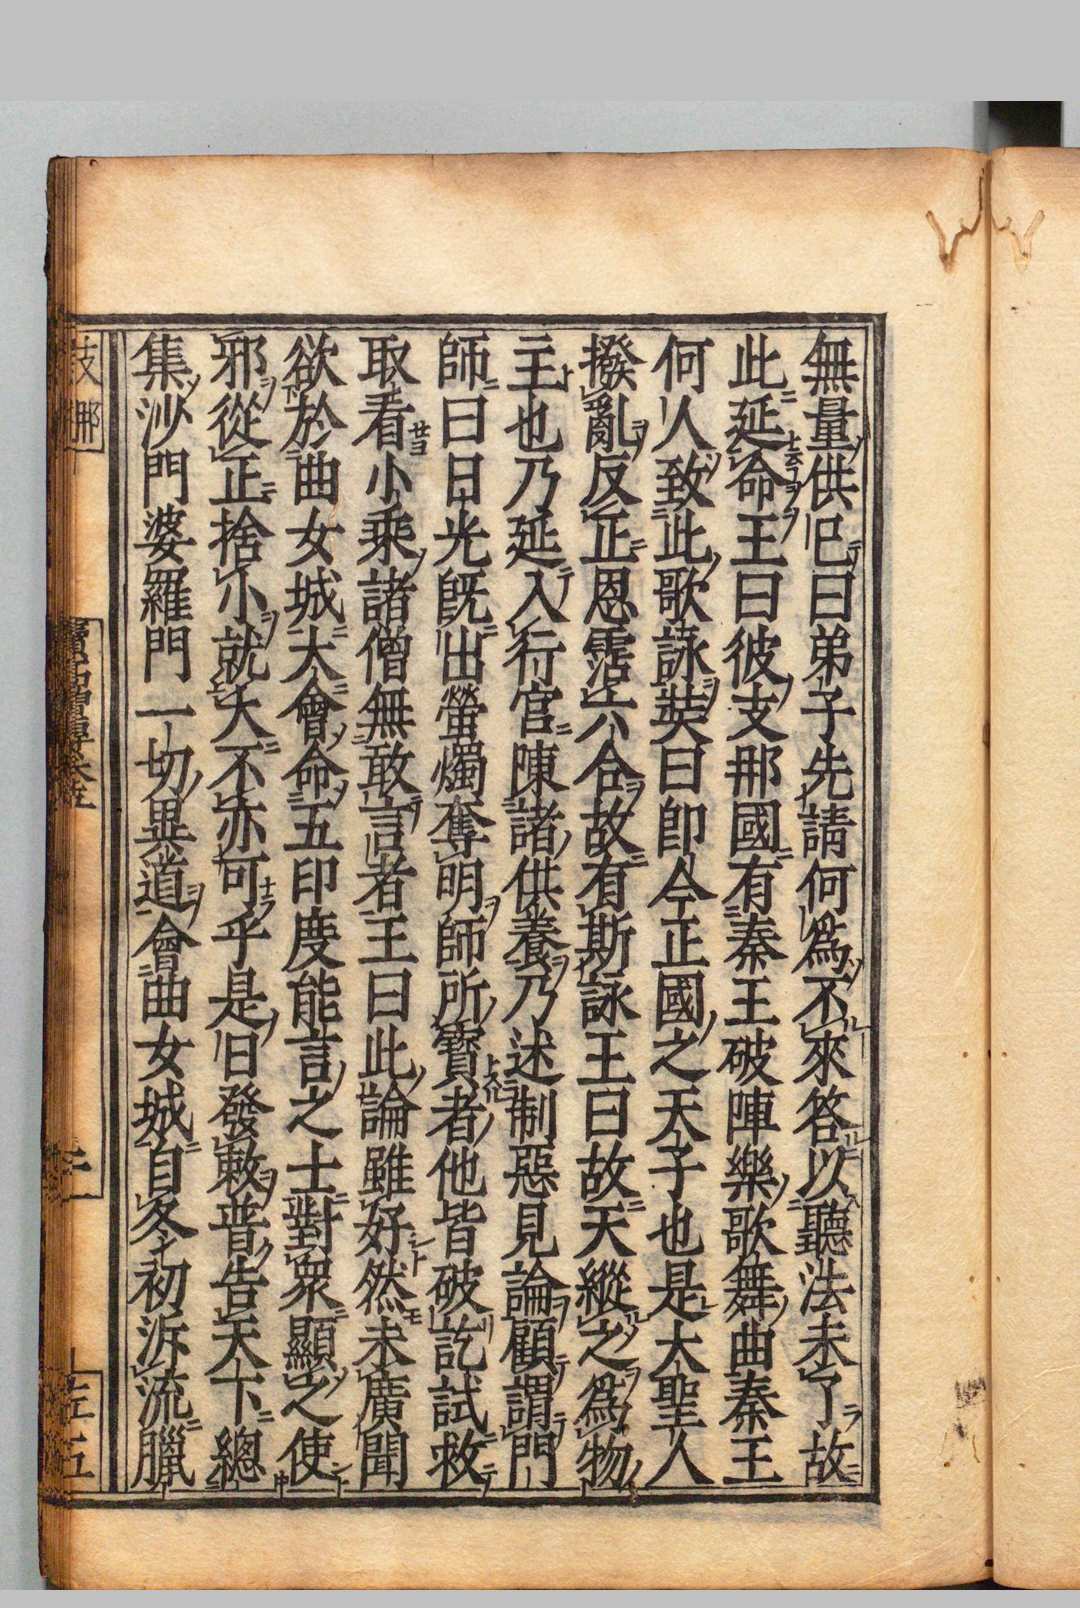 無量供已曰弟子先請何為不來答以聽法未了故
此延命王曰彼支那國有秦王破陣樂歌舞曲秦王
何人致此歌詠奘曰即今正國之天子也是大聖人
撥亂反正恩霑六合故有斯詠王曰故天縱之為物
主也乃延入行宮陳諸供養乃述制惡見論顧謂門
師曰日光既出螢燭奪明師所寶者他皆破訖試救
取看小乘諸僧無敢言者王曰此論雖好然未廣聞
欲於曲女城大會命五印度能言之士對眾顯之使
邪從正捨小就大不亦可乎是日發敕普告天下總
集沙門婆羅門一切異道會曲女城自冬初泝流臘